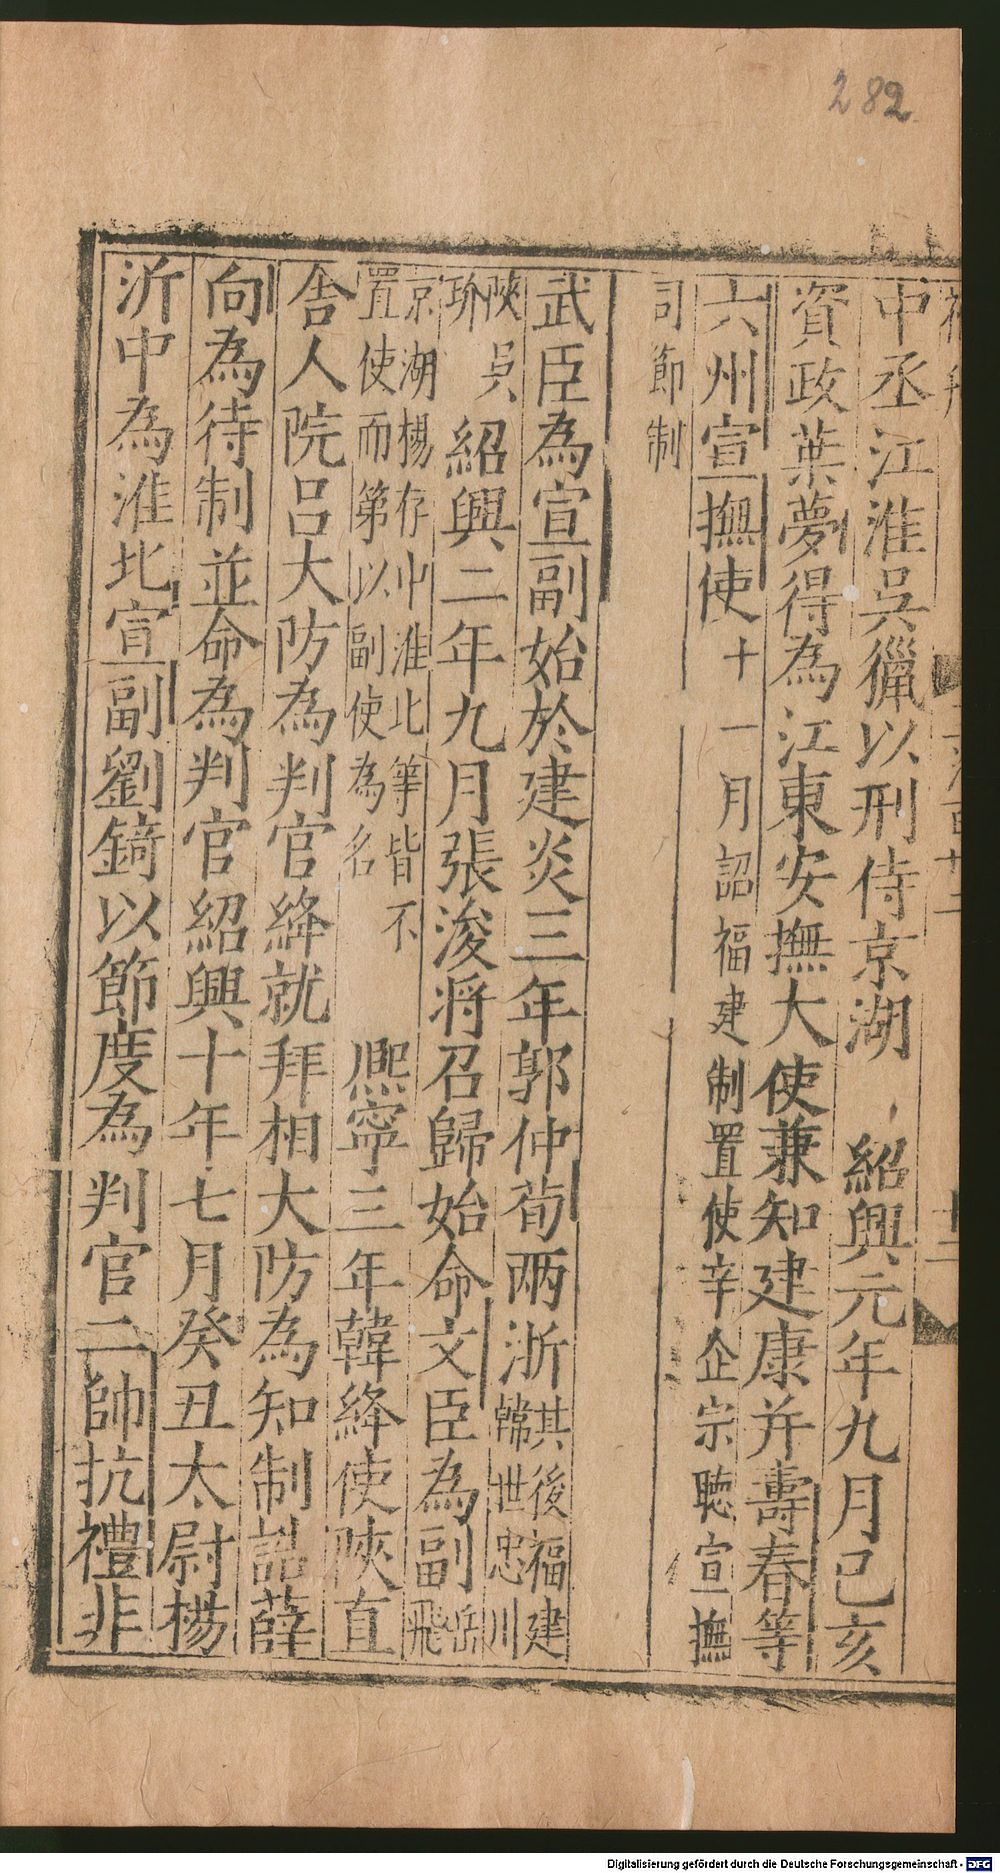 282
中丞江淮吳獵以刑侍京湖 紹興元年九月己亥
資政葉夢得為江東安撫大使兼知建康并壽春等
六州宣撫使十一月詔福建制置使辛企宗聽宣撫
司節制
武臣為宣副始於建炎三年郭仲荀兩浙其後福建韓世忠川
陝吳玠 紹興二年九月張浚將召歸始命文臣為副岳飛
京湖楊存中淮北等皆不置使而第以副使為名 熈寧三年韓絳使陝直
舎人院呂大防為判官絳就拜相大防為知制誥薛
向為待制並命為判官紹興十年七月癸丑太尉楊
沂中為淮北宣副劉錡以節度為判官二帥抗禮非
Digitalisierung gefördert durch die Deutsche Forschungsgemeinschaft - DFG